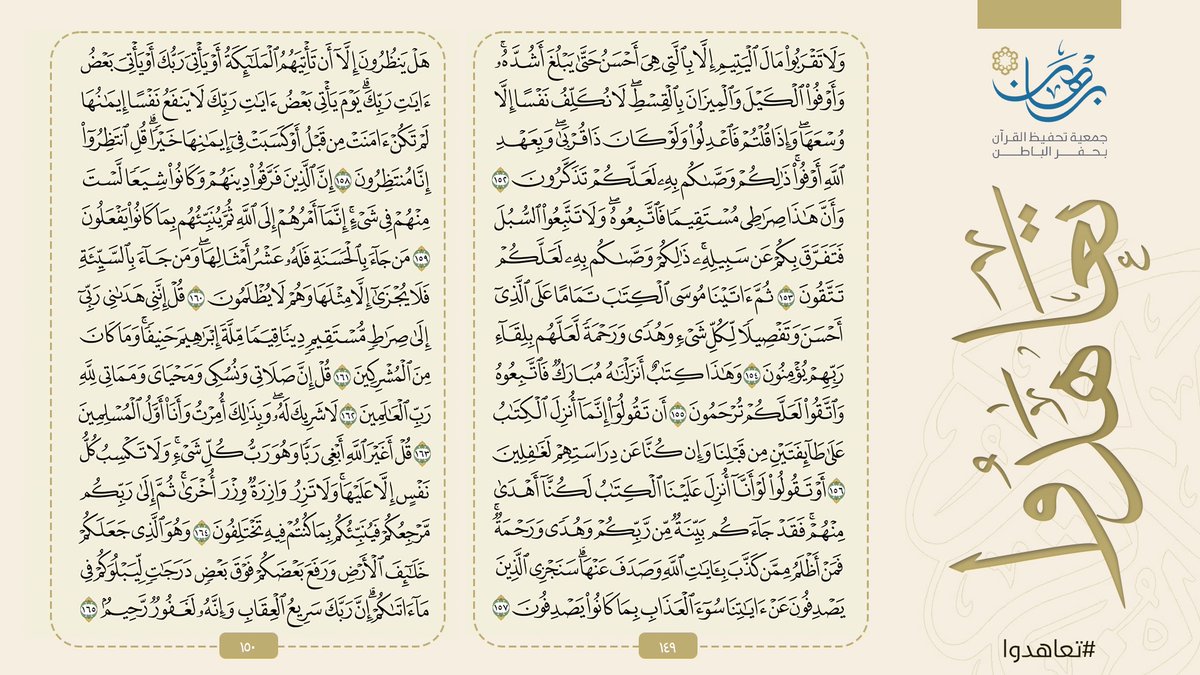 برهان
جمعية تحفيظ القرآن
بحفر الباطن
تعاهدوا
#تعاهدوا
وَلَا تَقْرَبُوا۟ مَالَ ٱلْيَتِيمِ إِلَّا بِٱلَّتِى هِىَ أَحْسَنُ حَتَّىٰ يَبْلُغَ أَشُدَّهُۥ ۚ
وَأَوْفُوا۟ ٱلْكَيْلَ وَٱلْمِيزَانَ بِٱلْقِسْطِ ۖ لَا نُكَلِّفُ نَفْسًا إِلَّا
وُسْعَهَا ۖ وَإِذَا قُلْتُمْ فَٱعْدِلُوا۟ وَلَوْ كَانَ ذَا قُرْبَىٰ ۖ وَبِعَهْدِ
ٱللَّهِ أَوْفُوا۟ ۚ ذَٰلِكُمْ وَصَّىٰكُم بِهِۦ لَعَلَّكُمْ تَذَكَّرُونَ ١٥٢
وَأَنَّ هَٰذَا صِرَٰطِى مُسْتَقِيمًا فَٱتَّبِعُوهُ ۖ وَلَا تَتَّبِعُوا۟ ٱلسُّبُلَ
فَتَفَرَّقَ بِكُمْ عَن سَبِيلِهِۦ ۚ ذَٰلِكُمْ وَصَّىٰكُم بِهِۦ لَعَلَّكُمْ
تَتَّقُونَ ١٥٣ ثُمَّ ءَاتَيْنَا مُوسَى ٱلْكِتَٰبَ تَمَامًا عَلَى ٱلَّذِىٓ
أَحْسَنَ وَتَفْصِيلًا لِّكُلِّ شَىْءٍ وَهُدًى وَرَحْمَةً لَّعَلَّهُم بِلِقَآءِ
رَبِّهِمْ يُؤْمِنُونَ ١٥٤ وَهَٰذَا كِتَٰبٌ أَنزَلْنَٰهُ مُبَارَكٌ فَٱتَّبِعُوهُ
وَٱتَّقُوا۟ لَعَلَّكُمْ تُرْحَمُونَ ١٥٥ أَن تَقُولُوٓا۟ إِنَّمَآ أُنزِلَ ٱلْكِتَٰبُ
عَلَىٰ طَآئِفَتَيْنِ مِن قَبْلِنَا وَإِن كُنَّا عَن دِرَاسَتِهِمْ لَغَٰفِلِينَ
١٥٦ أَوْ تَقُولُوا۟ لَوْ أَنَّآ أُنزِلَ عَلَيْنَا ٱلْكِتَٰبُ لَكُنَّآ أَهْدَىٰ
مِنْهُمْ ۚ فَقَدْ جَآءَكُم بَيِّنَةٌ مِّن رَّبِّكُمْ وَهُدًى وَرَحْمَةٌ ۚ
فَمَنْ أَظْلَمُ مِمَّن كَذَّبَ بِـَٔايَٰتِ ٱللَّهِ وَصَدَفَ عَنْهَا ۗ سَنَجْزِى ٱلَّذِينَ
يَصْدِفُونَ عَنْ ءَايَٰتِنَا سُوٓءَ ٱلْعَذَابِ بِمَا كَانُوا۟ يَصْدِفُونَ ١٥٧
١٤٩
هَلْ يَنظُرُونَ إِلَّآ أَن تَأْتِيَهُمُ ٱلْمَلَٰٓئِكَةُ أَوْ يَأْتِىَ رَبُّكَ أَوْ يَأْتِىَ بَعْضُ
ءَايَٰتِ رَبِّكَ ۗ يَوْمَ يَأْتِى بَعْضُ ءَايَٰتِ رَبِّكَ لَا يَنفَعُ نَفْسًا إِيمَٰنُهَا
لَمْ تَكُنْ ءَامَنَتْ مِن قَبْلُ أَوْ كَسَبَتْ فِىٓ إِيمَٰنِهَا خَيْرًا ۗ قُلِ ٱنتَظِرُوٓا۟
إِنَّا مُنتَظِرُونَ ١٥٨ إِنَّ ٱلَّذِينَ فَرَّقُوا۟ دِينَهُمْ وَكَانُوا۟ شِيَعًا لَّسْتَ
مِنْهُمْ فِى شَىْءٍ ۚ إِنَّمَآ أَمْرُهُمْ إِلَى ٱللَّهِ ثُمَّ يُنَبِّئُهُم بِمَا كَانُوا۟ يَفْعَلُونَ
١٥٩ مَن جَآءَ بِٱلْحَسَنَةِ فَلَهُۥ عَشْرُ أَمْثَالِهَا ۖ وَمَن جَآءَ بِٱلسَّيِّئَةِ
فَلَا يُجْزَىٰٓ إِلَّا مِثْلَهَا وَهُمْ لَا يُظْلَمُونَ ١٦٠ قُلْ إِنَّنِى هَدَىٰنِى رَبِّىٓ
إِلَىٰ صِرَٰطٍ مُّسْتَقِيمٍ دِينًا قِيَمًا مِّلَّةَ إِبْرَٰهِيمَ حَنِيفًا ۚ وَمَا كَانَ
مِنَ ٱلْمُشْرِكِينَ ١٦١ قُلْ إِنَّ صَلَاتِى وَنُسُكِى وَمَحْيَاىَ وَمَمَاتِى لِلَّهِ
رَبِّ ٱلْعَٰلَمِينَ ١٦٢ لَا شَرِيكَ لَهُۥ ۖ وَبِذَٰلِكَ أُمِرْتُ وَأَنَا۠ أَوَّلُ ٱلْمُسْلِمِينَ
١٦٣ قُلْ أَغَيْرَ ٱللَّهِ أَبْغِى رَبًّا وَهُوَ رَبُّ كُلِّ شَىْءٍ ۚ وَلَا تَكْسِبُ كُلُّ
نَفْسٍ إِلَّا عَلَيْهَا ۚ وَلَا تَزِرُ وَازِرَةٌ وِزْرَ أُخْرَىٰ ۚ ثُمَّ إِلَىٰ رَبِّكُم
مَّرْجِعُكُمْ فَيُنَبِّئُكُم بِمَا كُنتُمْ فِيهِ تَخْتَلِفُونَ ١٦٤ وَهُوَ ٱلَّذِى جَعَلَكُمْ
خَلَٰٓئِفَ ٱلْأَرْضِ وَرَفَعَ بَعْضَكُمْ فَوْقَ بَعْضٍ دَرَجَٰتٍ لِّيَبْلُوَكُمْ فِى
مَآ ءَاتَىٰكُمْ ۗ إِنَّ رَبَّكَ سَرِيعُ ٱلْعِقَابِ وَإِنَّهُۥ لَغَفُورٌ رَّحِيمٌۢ ١٦٥
١٥٠